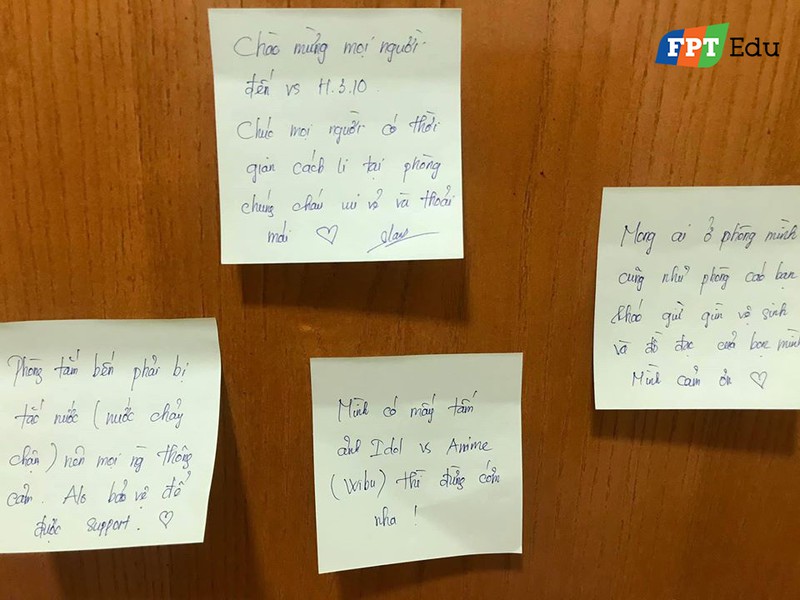 FPT Edu
Chào mừng mọi người
đến vs H.3.10.
Chúc mọi người có thời
gian cách li tại phòng
chúng cháu vui vẻ và thoải
mái ♡
Mong ai ở phòng mình
cũng như phòng các bạn
khác giữ gìn vệ sinh
và đồ đạc của bọn mình
Mình cảm ơn ♡
Phòng tắm bên phải bị
tắc nước (nước chảy
chậm) nên mọi ng thông
cảm. Alo bảo vệ để
được support. ♡
Mình có mấy tấm
ảnh Idol vs Anime
(Wibu) thì đừng cóm
nha !